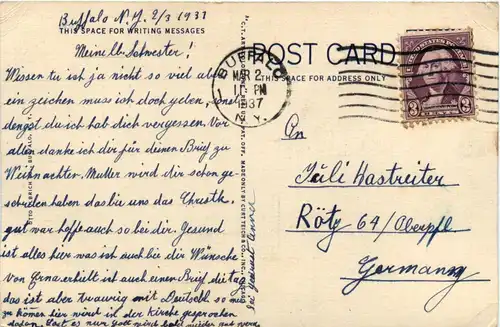 Buffalo N.Y. 2/3 1937
THIS SPACE FOR WRITING MESSAGES
Meine lb. Schwester!
Wissen tu ist ja nicht so viel aber
ein zeichen muss ich doch geben, sonst
dengst du ich hab dich vergessen. Vor
allen danke ich dir für deinen Brief zu
Weihnachten. Mutter wird dir schon ge-
schrieben haben das bie uns das Christk.
gut war hoffe auch so bei dir. Gesund
ist alles hier was ist auch bei dir Wünsche
von Erna erhielt ich auch einen Brief die tag
das ist aber traurig mit Deutschl so
zu hören hier wird in der Kirche gesprochen
POST CARD
THIS SPACE FOR ADDRESS ONLY
BUFFALO
MAR 2
11 PM
1937
N.Y.
UNITED STATES
3 CENTS 3
An
Juli Hastreiter
Rötz 64/Oberpfl.
Germany